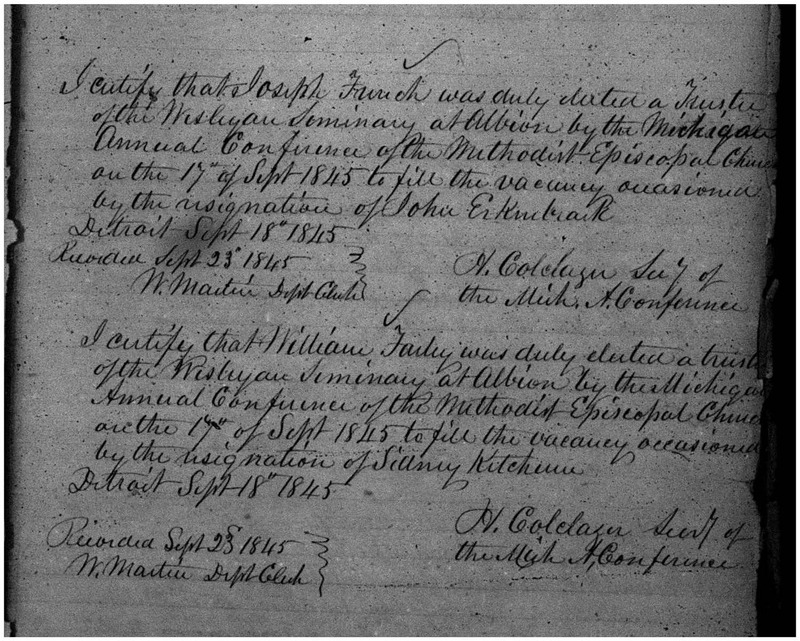 I certify that Joseph French was duly elected a Trustee
of the Wesleyan Seminary at Albion by the Michigan
Annual Conference of the Methodist Episcopal Church
on the 17th of Sept 1845 to fill the vacancy occasioned
by the resignation of John
Detroit Sept 18th 1845
Recorded Sept 23d 1845
W. Martin Dept Clerk
H. Colclazer Secy of
the Mich. A. Conference
I certify that William Farley was duly elected a trustee
of the Wesleyan Seminary at Albion by the Michigan
Annual Conference of the Methodist Episcopal Church
on the 17th of Sept 1845 to fill the vacancy occasioned
by the resignation of Sidney Ketchum
Detroit Sept 18th 1845
Recorded Sept 23d 1845
W. Martin Dept Clerk
H. Colclazer Secry of
the Mich A, Conference